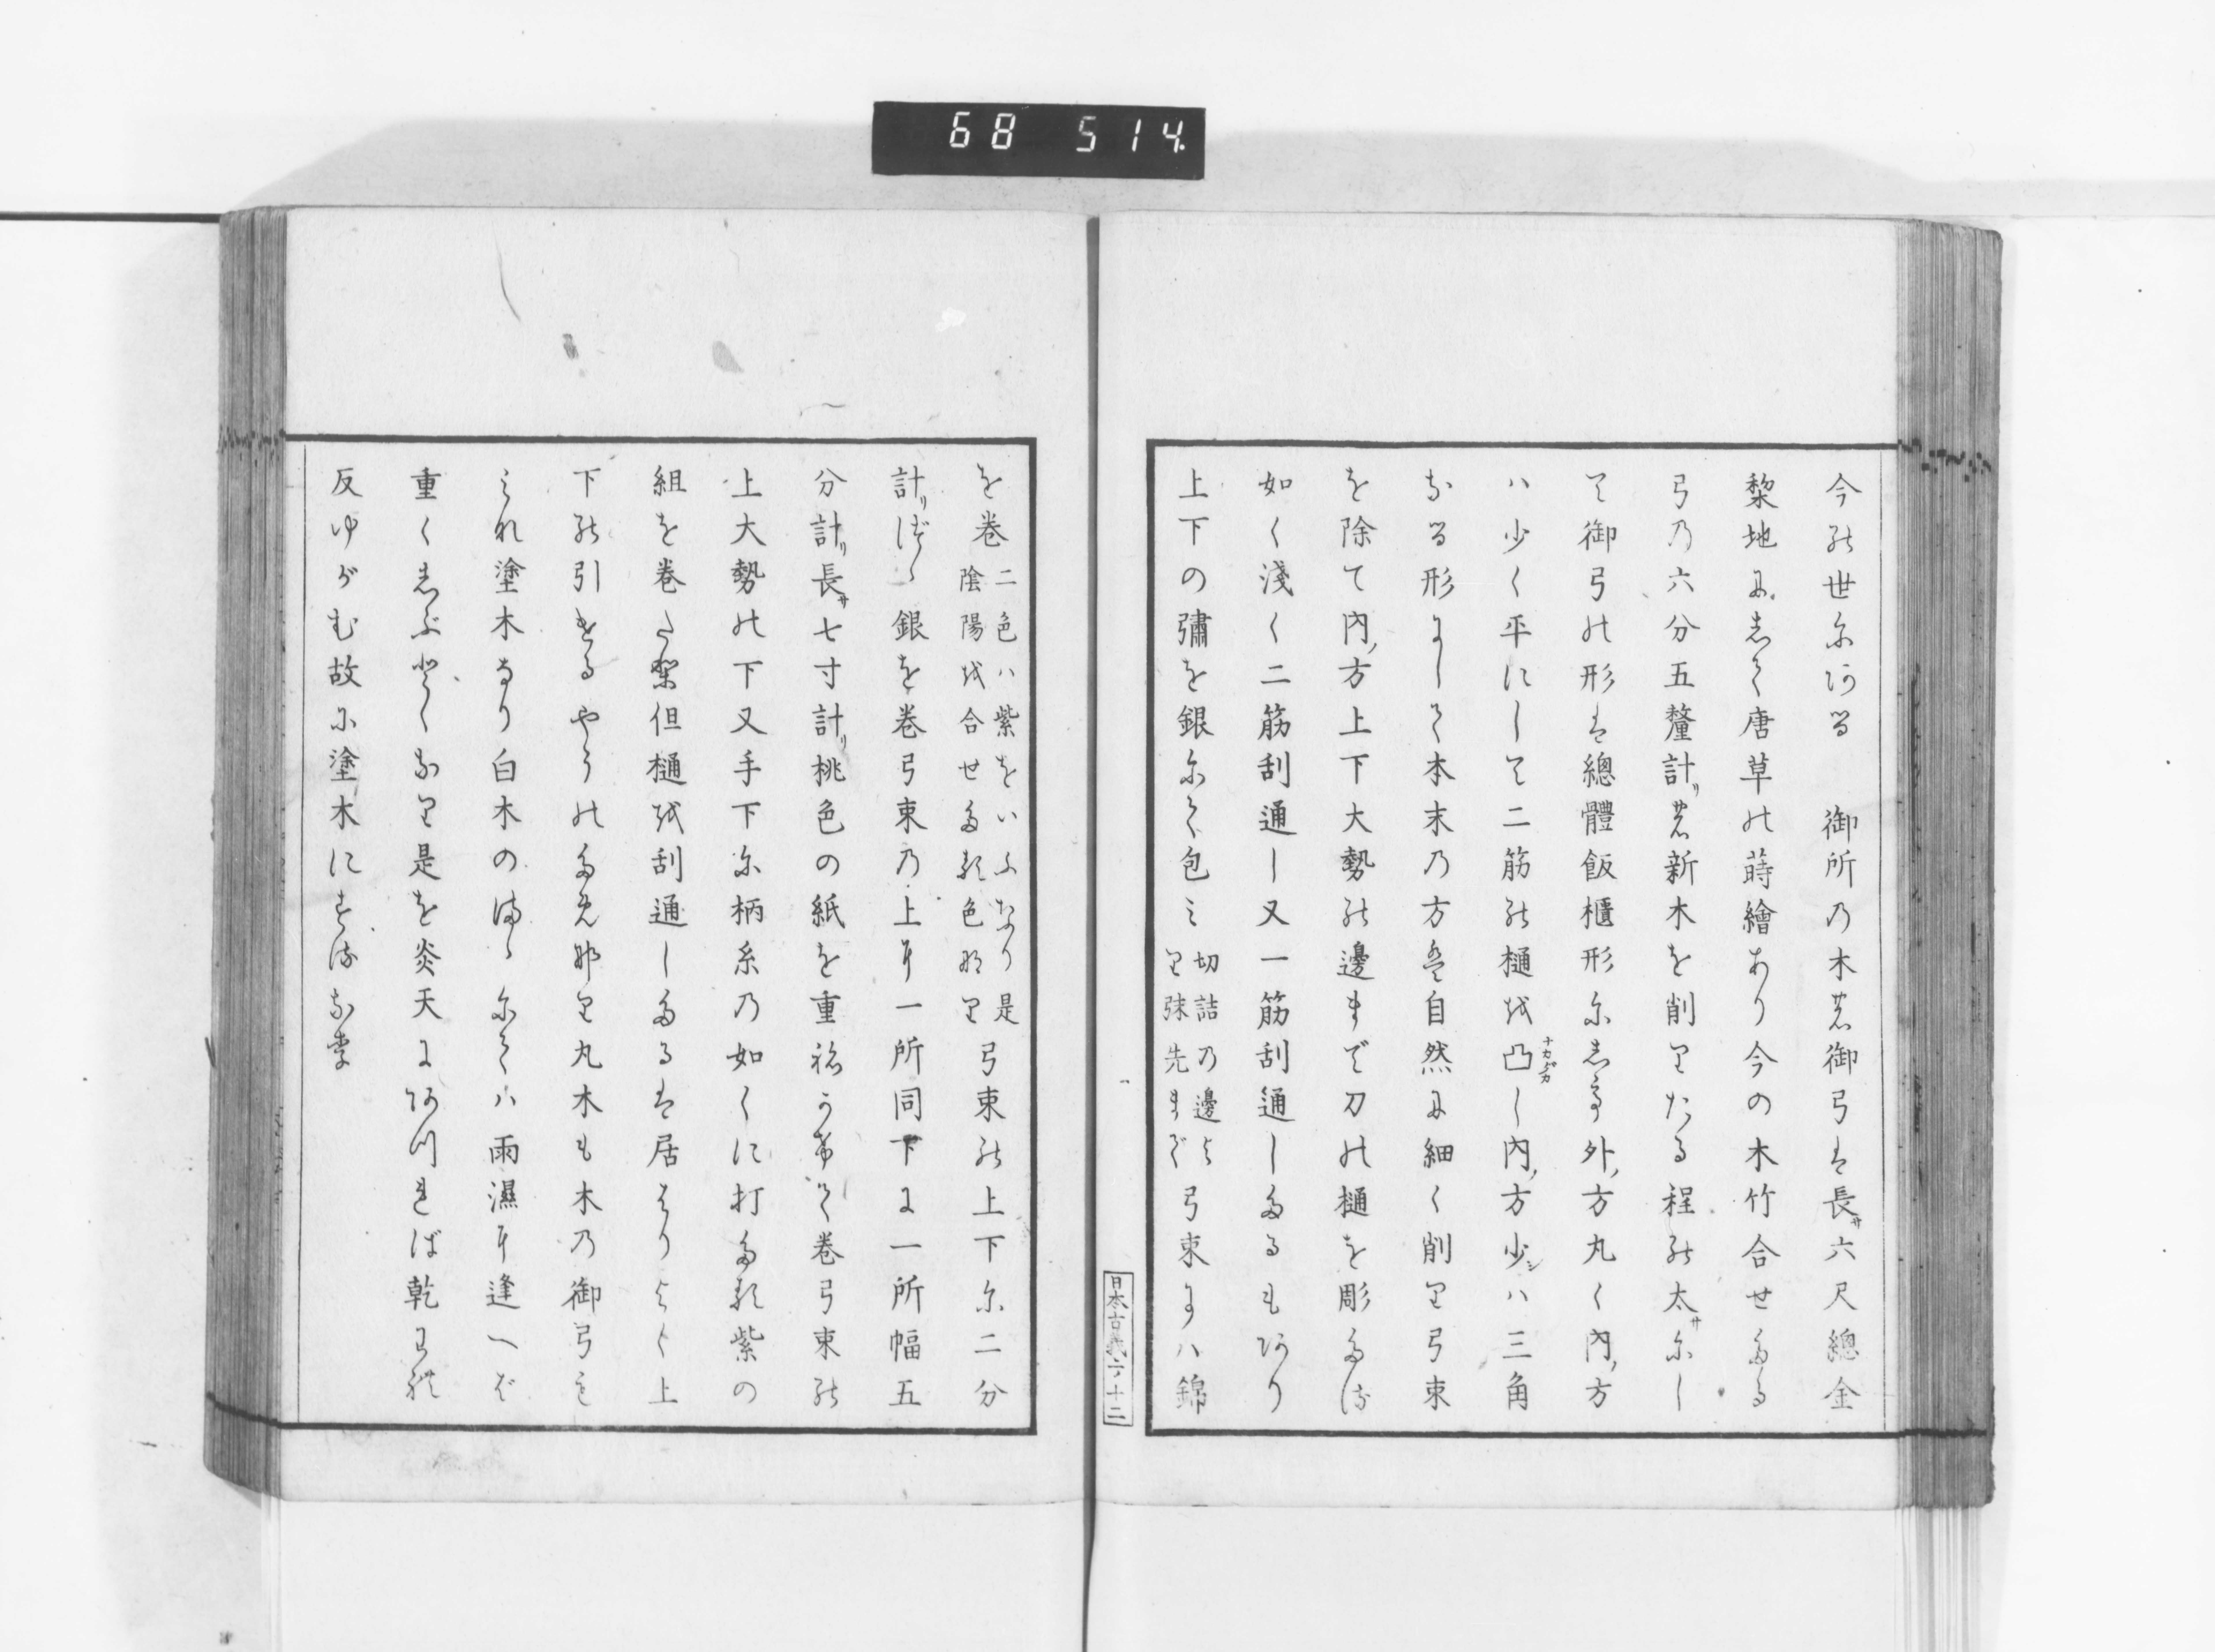 68 514
今の世にある　御所の木の御弓は長サ六尺總金
梨地にして唐草の蒔繪あり今の木竹合せたる
弓の六分五釐計リの新木を削りたる程の太サにし
て御弓の形は總體飯櫃形にして外ノ方丸く內ノ方
ハ少く平にして二筋の樋を凸し內ノ方少シハ三角
なる形にして本末の方は自然に細く削り弓束
を除て內ノ方上下大勢の邊まで刀の樋を彫たり
如く淺く二筋刮通し又一筋刮通したるもあり
上下の彇を銀にて包み切詰の邊より弭先まで弓束にハ錦
日本古義六ノ十二
を卷二色ハ紫をいふなり是陰陽を合せたる色なり弓束の上下に二分
計リづゝ銀を卷弓束の上に一所同下に一所幅五
分計リ長サ七寸計リ桃色の紙を重て卷弓束の
上大勢の下又手下に柄糸の如くに打たる紫の
組を卷た但樋を刮通したるは居はりよく上
下の引けるやうのためなり丸木も木の御弓も
みな塗木なり白木のまゝにてハ雨濕に逢へば
重くしぶとくなり是を炎天にあつれば乾われ
反ゆがむ故に塗木にするなり